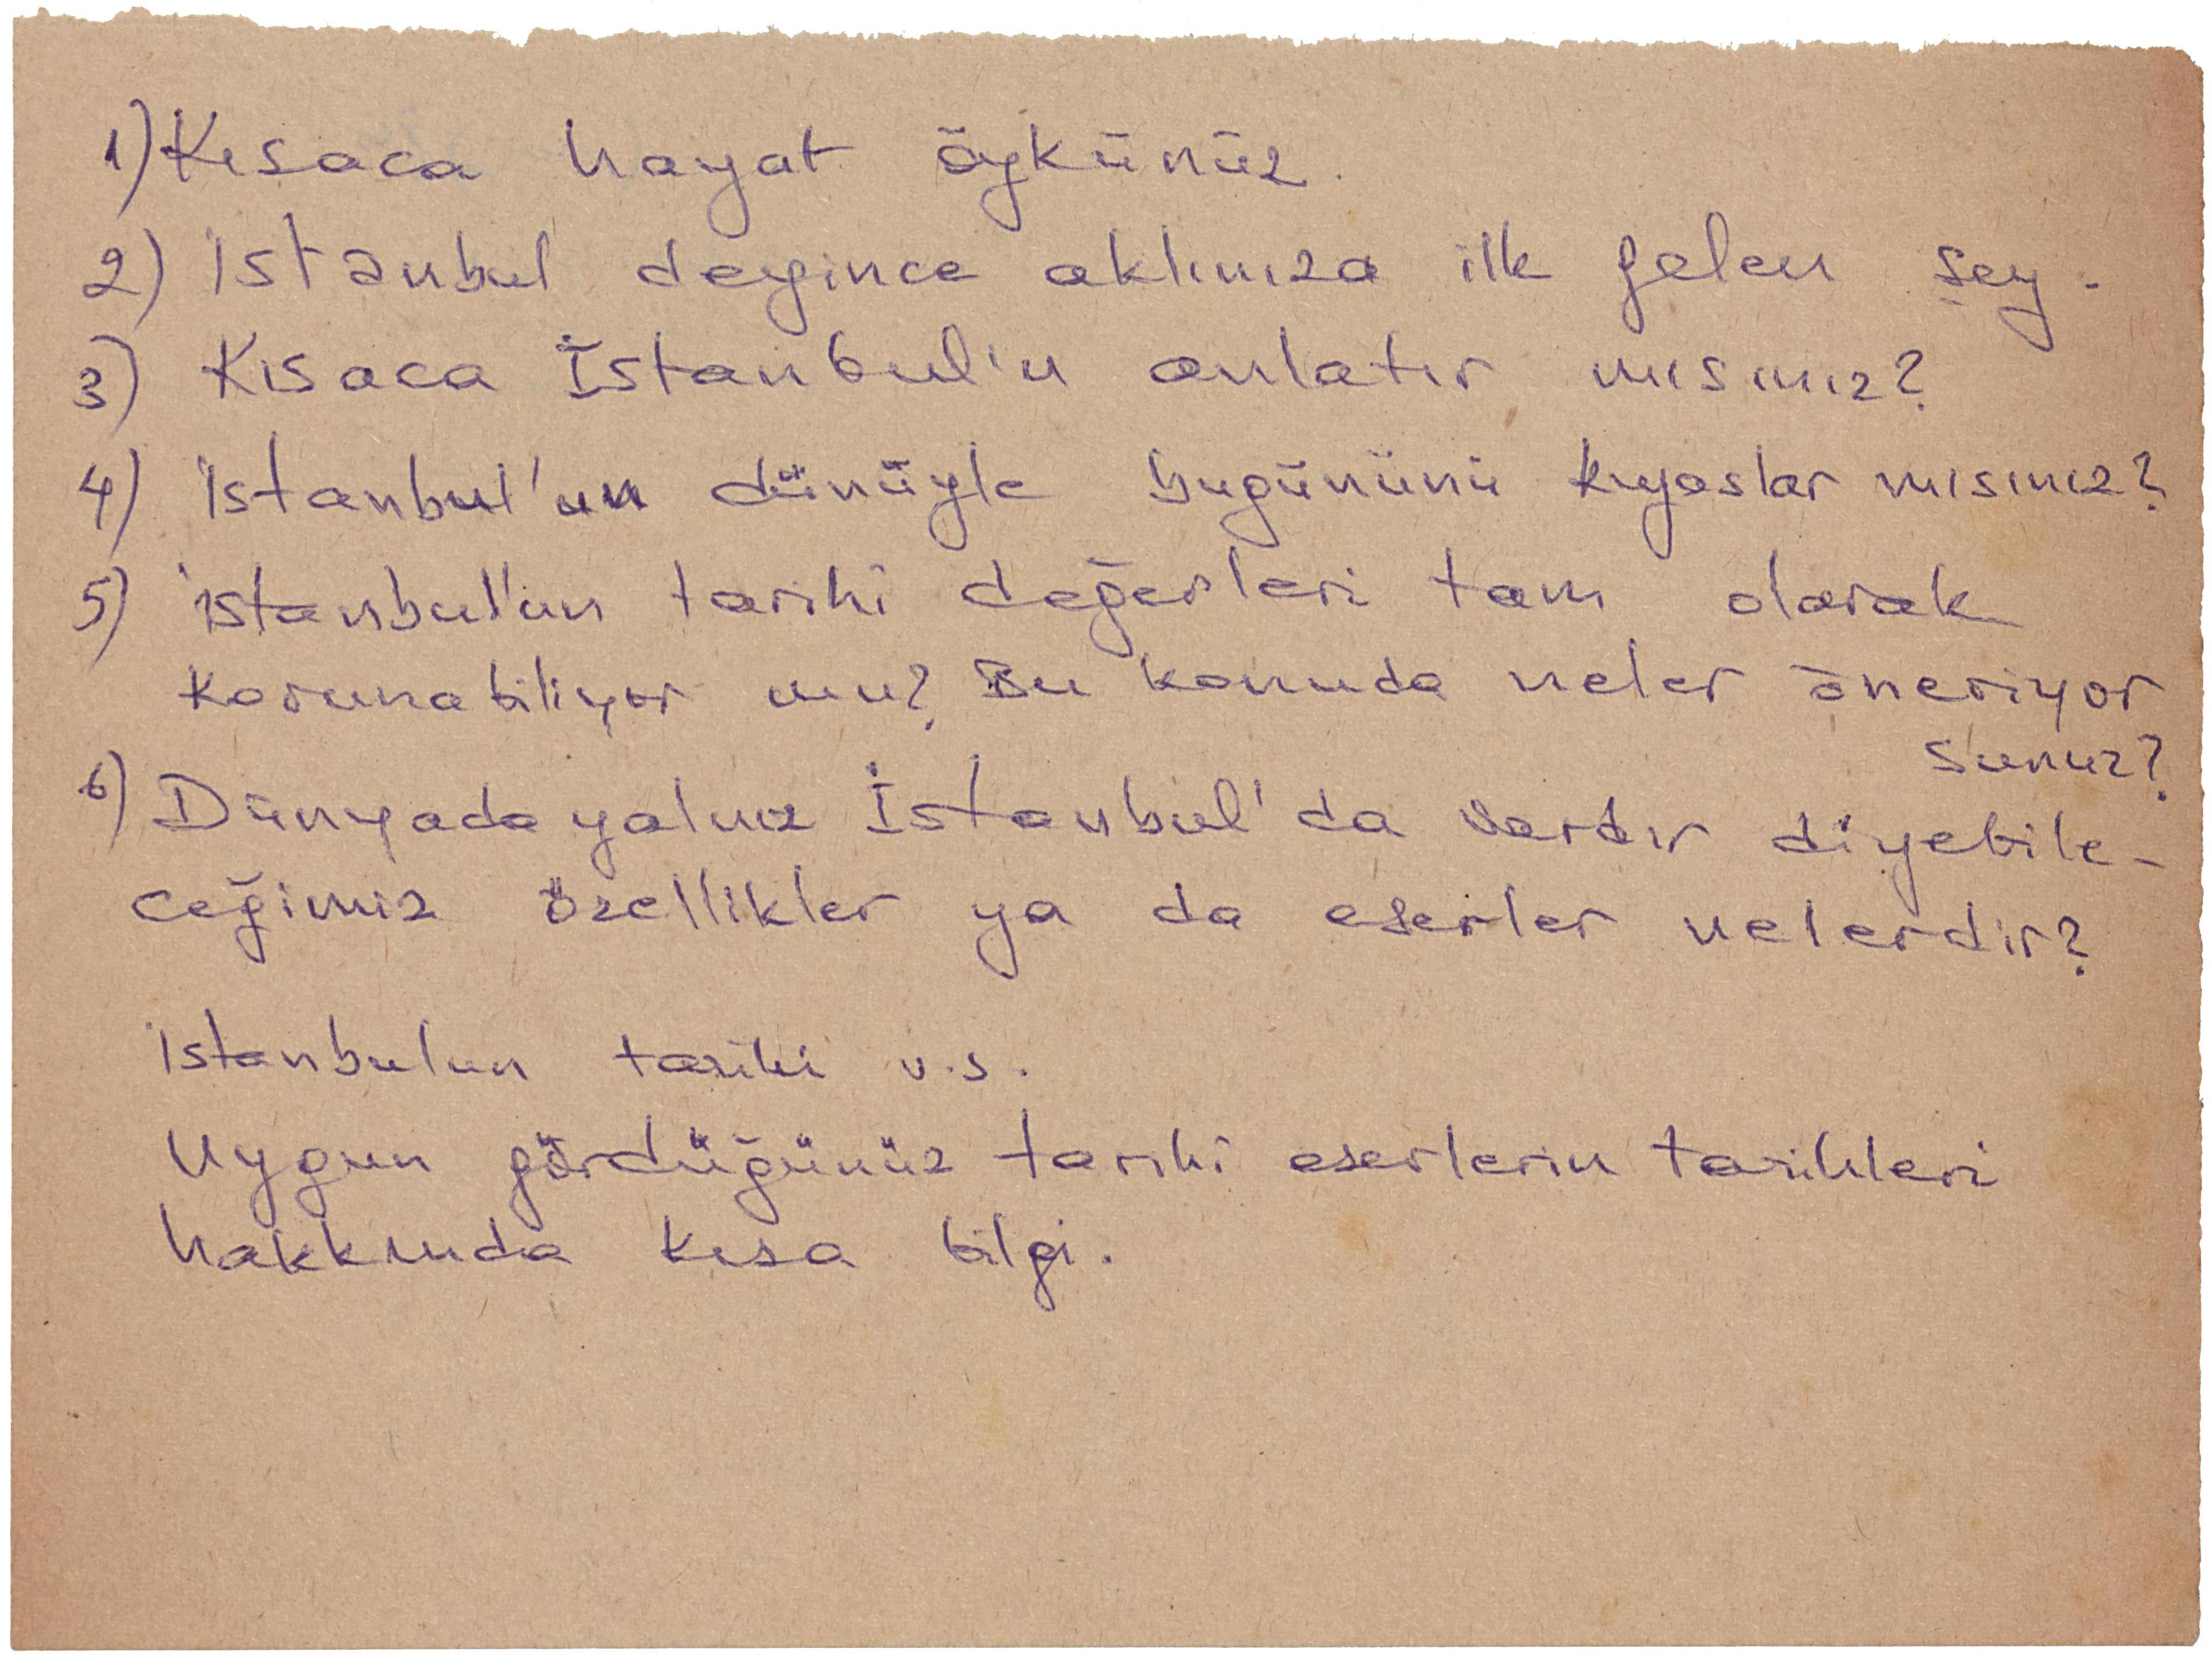 1) Kısaca hayat öykünüz.
2) İstanbul deyince aklınıza ilk gelen şey.
3) Kısaca İstanbul'u anlatır mısınız?
4) İstanbul'un dünüyle bugününü kıyaslar mısınız?
5) İstanbul'un tarihi değerleri tam olarak
korunabiliyor mu? Bu konuda neler öneriyor
sunuz?
6) Dünyada yalnız İstanbul'da vardır diyebile-
ceğimiz özellikler ya da eserler nelerdir?
İstanbulun tarihi v.s.
Uygun gördüğünüz tarihi eserlerin tarihleri
hakkında kısa bilgi.